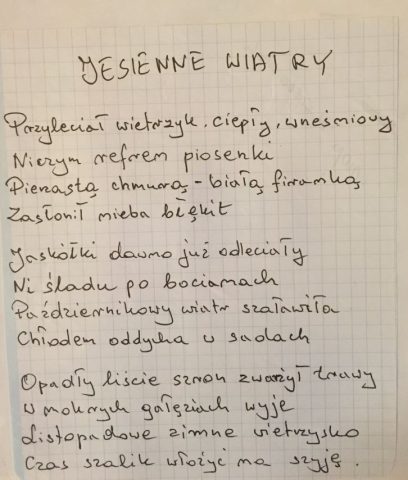 JESIENNE WIATRY
Przyleciał wietrzyk, ciepły, wneśmiovy
Niczym refren piosenki
Pierzastą chmurą - białą firanką
Zasłonił nieba błękit
Jaskółki dawno już odleciały
Ni śladu po bocianach
Październikowy wiatr szaławiła
Chłodem oddycha w sadach
Opadły liście szron zwarzył trawy
W mokrych gałęziach wyje
Listopadowe zimne wietrzysko
Czas szalik włożyć na szyję.